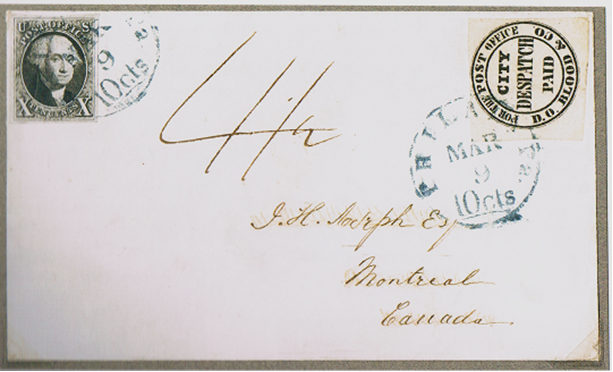 U.S.
POST OFFICE
X X
9
10cts
4½
POST OFFICE
FOR THE
CITY
DESPATCH
PAID
D.O. BLOOD & CO
PHILA
MAR
9
10cts
J. H. Joseph Esq
Montreal
Canada